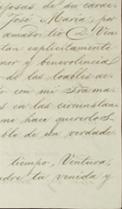 josas de su carác
José María, por
amador tio D. Ven
tan explicitamente
mor y benevolencia
de las loables ac
con mi S.ra ma
s en las circunstan
me hace quererlos
ble de un verdade
tiempo, Ventura,
tu venida y